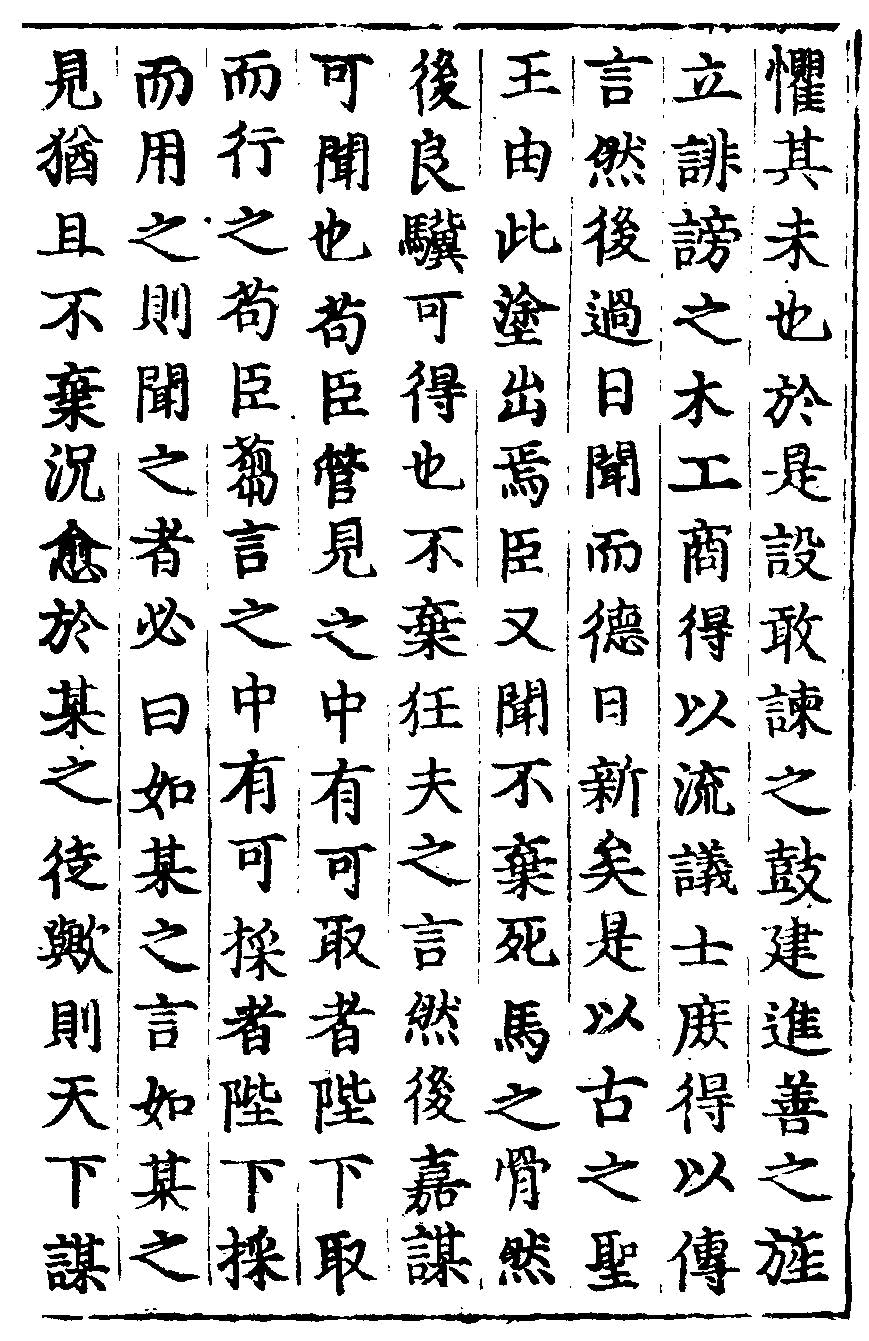 懼其未也於是設敢諫之鼓建進善之旌
立誹謗之木工商得以流議士庻得以傳
言然後過日聞而德日新矣是以古之聖
王由此塗出焉臣又聞不棄死馬之骨然
後良驥可得也不棄狂夫之言然後嘉謀
可聞也苟臣管見之中有可取者陛下取
而行之苟臣蒭言之中有可採者陛下採
而用之則聞之者必曰如某之言如某之
見猶且不棄況愈於某之徒歟則天下謀